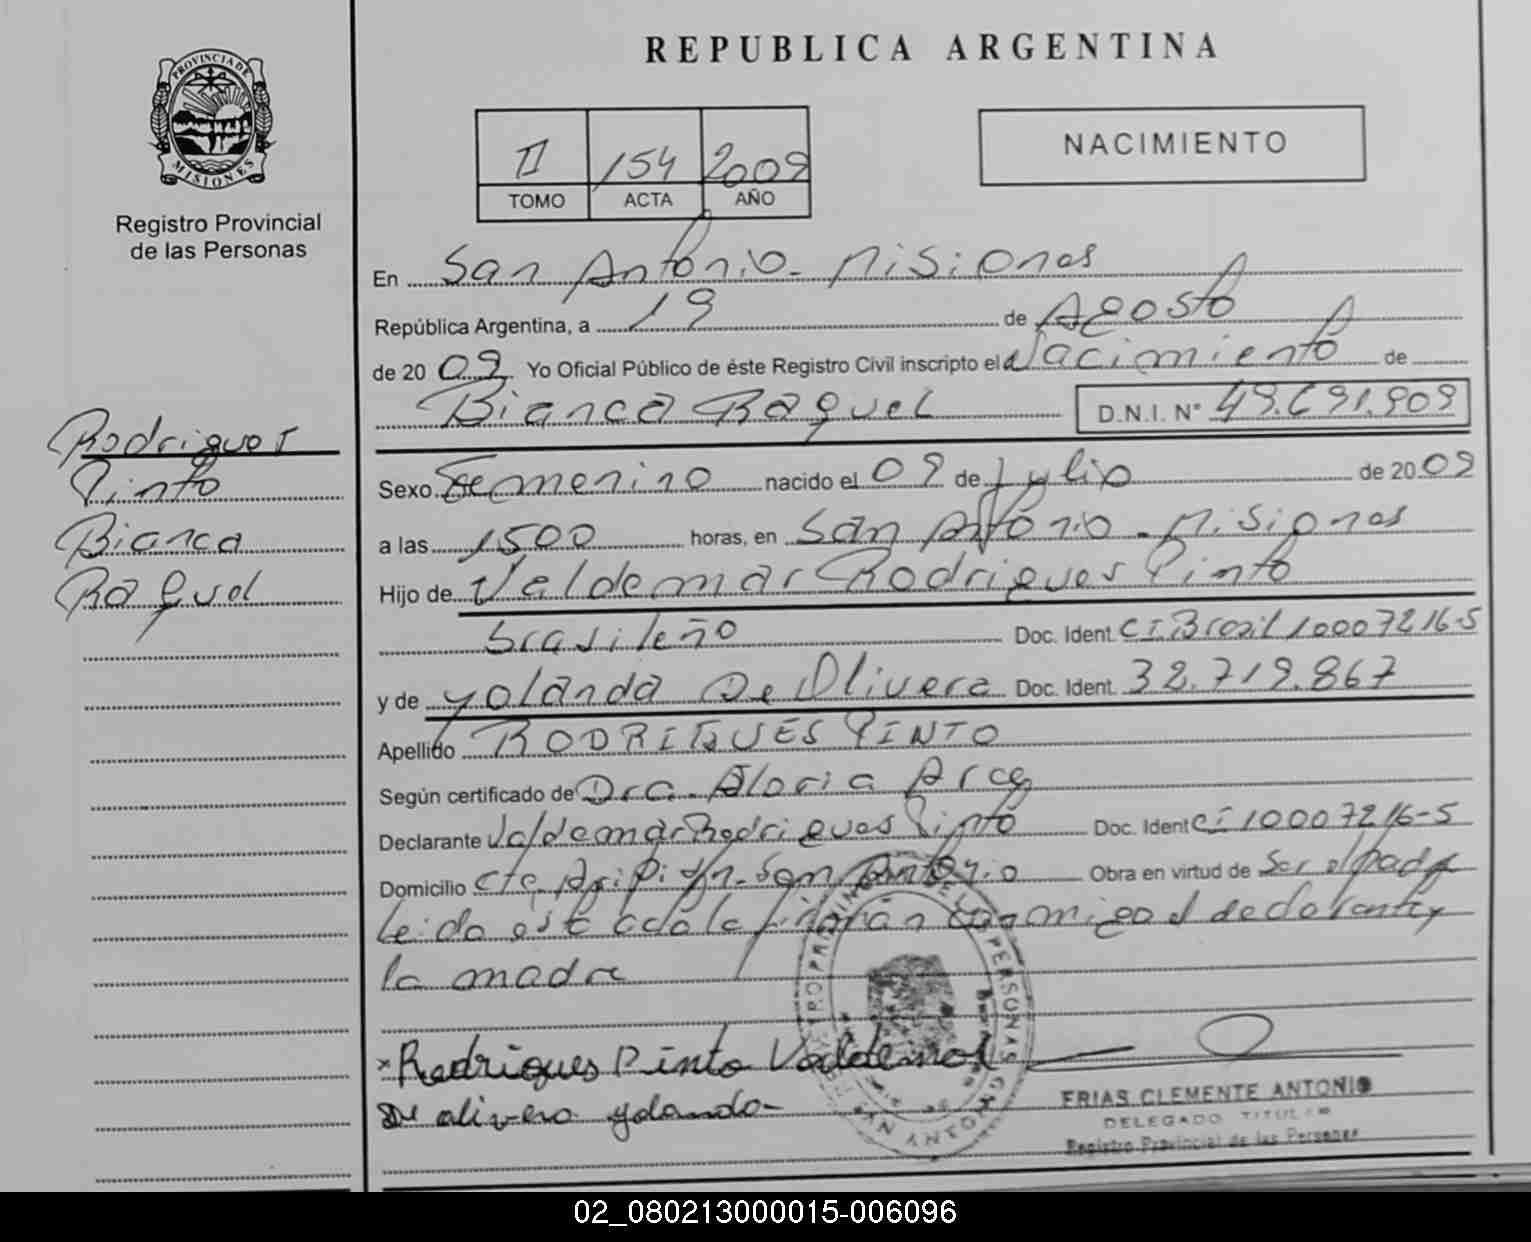 REPUBLICA ARGENTINA
PROVINCIA DE
MISIONES
Registro Provincial
de las Personas
II 154 2009
TOMO ACTA AÑO
NACIMIENTO
En San Antonio - Misiones
República Argentina, a 19 de Agosto
de 2009 Yo Oficial Público de éste Registro Civil inscripto el Nacimiento de
Bianca Raquel D.N.I. N° 49.691.909
Rodrigues
Pinto
Bianca
Raquel
Sexo Femenino nacido el 09 de Julio de 2009
a las 1500 horas, en San Antonio - Misiones
Hijo de Valdemar Rodrigues Pinto
brasileño Doc. Ident. CI.Brasil 10007216-5
y de Yolanda De Olivera Doc. Ident. 32.719.867
Apellido RODRIGUES PINTO
Según certificado de Dra. Gloria Arce
Declarante Valdemar Rodrigues Pinto Doc. Ident CI 10007216-5
Domicilio San Antonio Obra en virtud de Ser el padre
Leida este acta la firmarán conmigo el declarante y
la madre
x Rodrigues Pinto Valdemar
De olivera yolanda
FRIAS CLEMENTE ANTONIO
DELEGADO TITULAR
Registro Provincial de las Personas
02_080213000015-006096